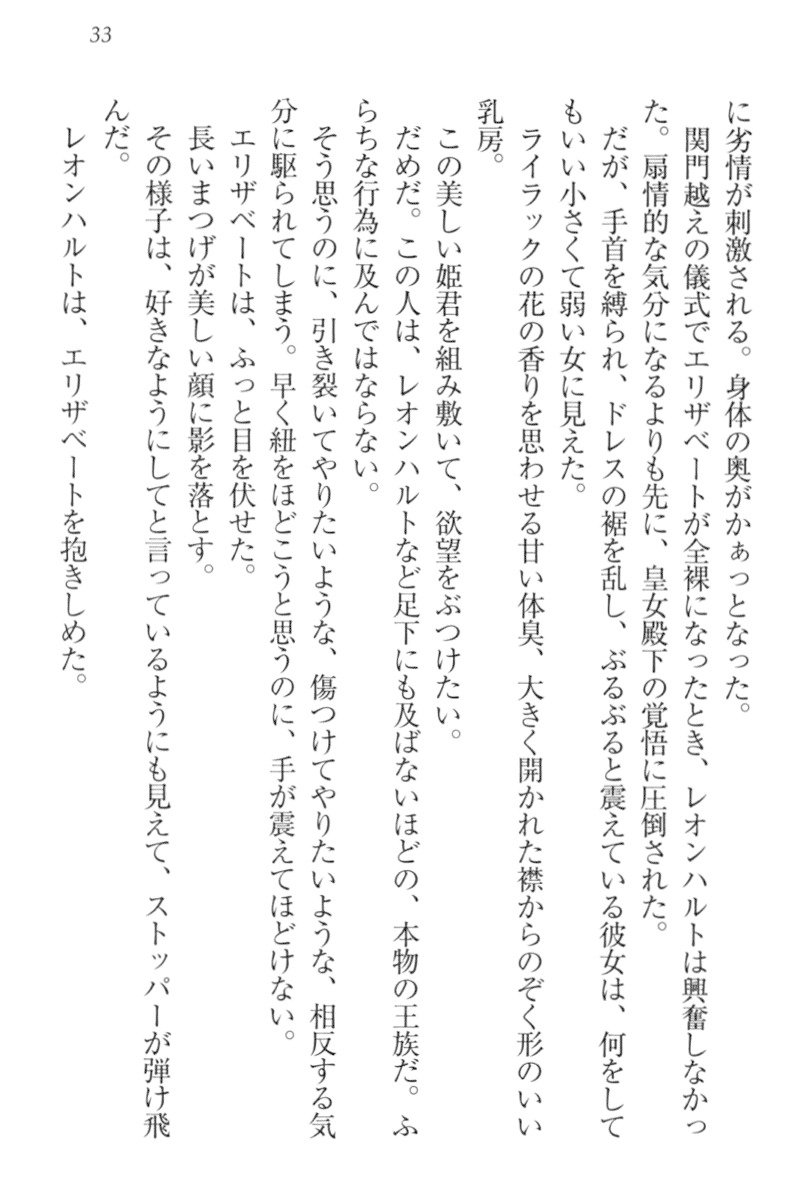 33
に劣情が刺激される。身体の奥がかぁっとなった。
関門越えの儀式でエリザベートが全裸になったとき、レオンハルトは興奮しなかっ
た。扇情的な気分になるよりも先に、皇女殿下の覚悟に圧倒された。
だが、手首を縛られ、ドレスの裾を乱し、ぶるぶると震えている彼女は、何をして
もいい小さくて弱い女に見えた。
ライラックの花の香りを思わせる甘い体臭、大きく開かれた襟からのぞく形のいい
乳房。
この美しい姫君を組み敷いて、欲望をぶつけたい。
だめだ。この人は、レオンハルトなど足下にも及ばないほどの、本物の王族だ。ふ
らちな行為に及んではならない。
そう思うのに、引き裂いてやりたいような、傷つけてやりたいような、相反する気
分に駆られてしまう。早く紐をほどこうと思うのに、手が震えてほどけない。
エリザベートは、ふっと目を伏せた。
長いまつげが美しい顔に影を落とす。
その様子は、好きなようにしてと言っているようにも見えて、ストッパーが弾け飛
んだ。
レオンハルトは、エリザベートを抱きしめた。